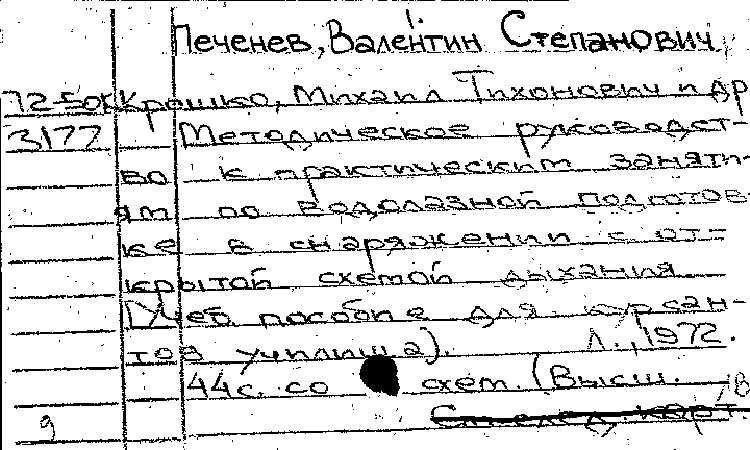 Печенев, Валентин Степанович
72-50к Крошко, Михаил Тихонович и др
3177 Методическое руководст-
во к практическим заняти-
ям по водолазной подготов-
ке в снаряжении с от-
крытой схемой дыхания.
(Учеб. пособие для курсан-
тов училища). Л., 1972.
44с. со схем. (Высш.
9